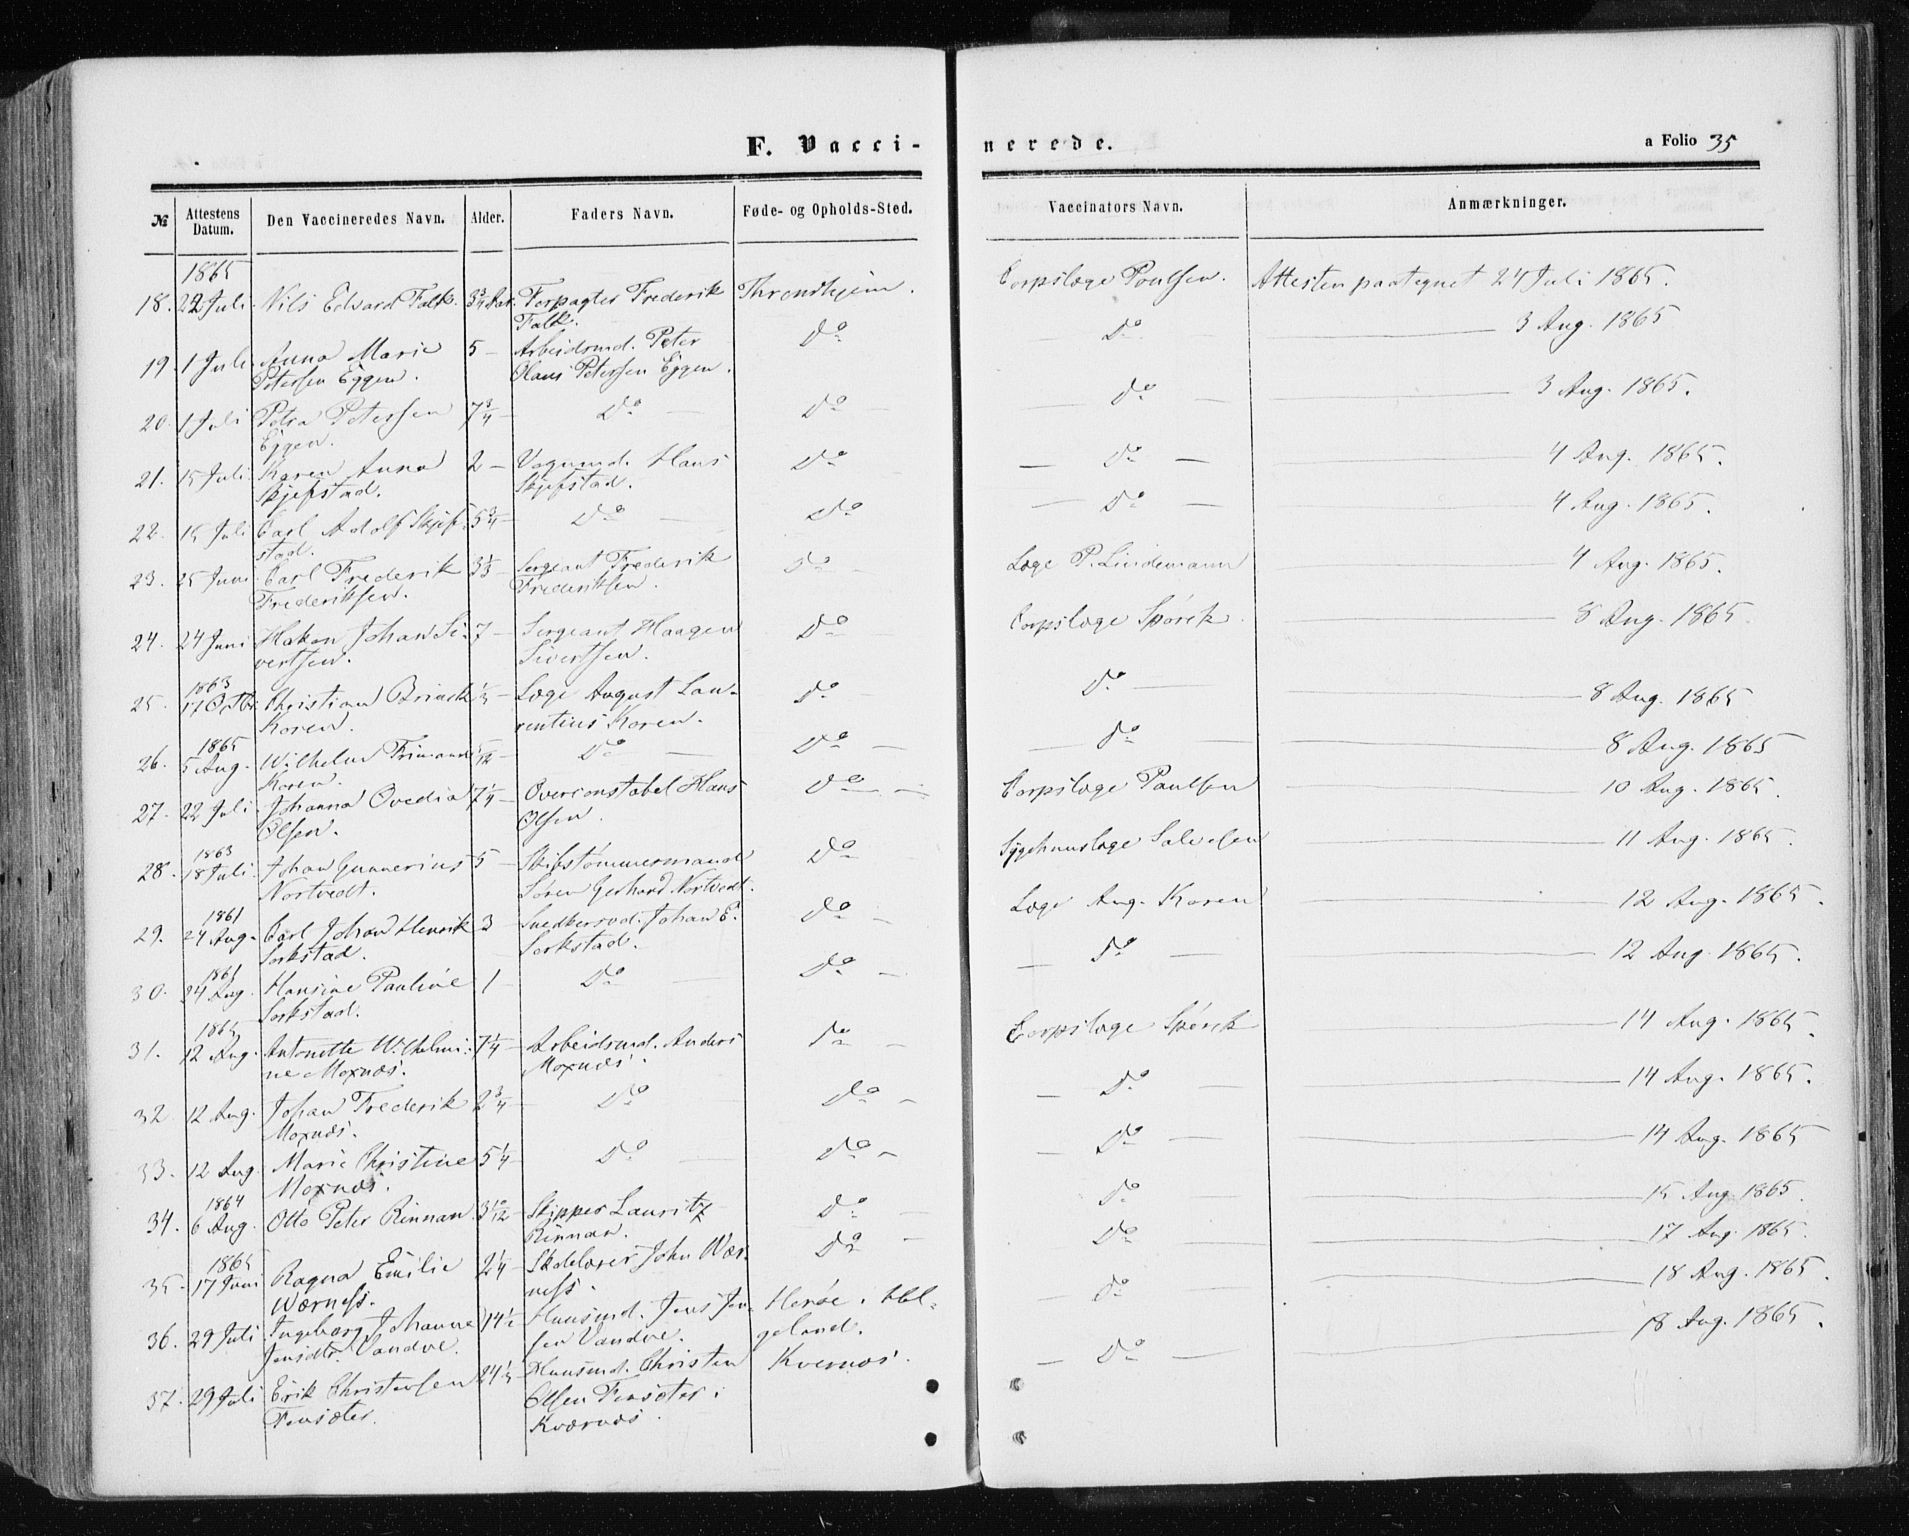 F. Vacci-
nerede.
a Folio 35
№ Attestens Datum. Den Vaccineredes Navn. Alder. Faders Navn. Føde- og Opholds-Sted. Vaccinators Navn. Anmærkninger.
1865
18. 22 Juli Nils Edvard Falk. 3 3/4 Aar. Forpagter Frederik Throndhjem. Corpslæge Poulsen. Attesten paategnet 24 Juli 1865.
Falk.
19. 1 Juli Anna Marie 5 - Arbeidsmd. Peter Do Do 3 Aug. 1865
Petersen Eggen. Olaus Petersen Eggen.
20. 1 Juli Petra Petersen 7 3/4 - Do Do Do 3 Aug. 1865.
Eggen.
21. 15 Juli Karen Anna 2 - Vognmd. Hans Do Do 4 Aug. 1865.
Skjefstad. Skjefstad.
22. 15 Juli Carl Adolf Skjef- 5 3/4 - Do Do Do 4 Aug. 1865.
stad.
23. 25 Juni Carl Frederik 3 1/3 - Sergeant Frederik Do Læge P. Lindemann 4 Aug. 1865.
Frederiksen. Frederiksen.
24. 24 Juni Hakon Johan Si- 7 - Sergeant Haagen Do Corpslæge Spørck 8 Aug. 1865
vertsen. Sivertsen.
1863
25. 17 Octbr. Christian Brinck 1/3 - Læge August Lau- Do Do 8 Aug. 1865
Koren. rentius Koren.
1865
26. 5 Aug. Wilhelm Frimann /12 - Do Do Do 8 Aug. 1865
Koren.
27. 22 Juli Johanna Ovedia 7 1/4 - Overconstabel Hans Do Corpslæge Paulsen 10 Aug. 1865.
Olsen. Olsen.
1863
28. 18 Juli. Johan Gunnerius 5 - Skibstømmermand Do Sygehuuslæge Salvesen 11 Aug. 1865.
Nortvedt. Søren Gerhard Nortvedt.
1861
29. 24 Aug. Carl Johan Henrik 3 - Snedkersvd. Johan E. Do Læge Aug. Koren 12 Aug. 1865.
Sorkstad. Sorkstad.
1861
30. 24 Aug. Hansine Pauline 1 - Do Do Do 12 Aug. 1865.
Sorkstad.
1865
31. 12 Aug. Antonette Wilhelmi- 7 1/4 - Arbeidsmd. Anders Do Corpslæge Spørck 14 Aug. 1865.
ne Moxnæs. Moxnæs.
32 12 Aug. Johan Frederik 2 3/4 - Do Do Do 14 Aug. 1865.
Moxnæs.
33. 12 Aug. Marie Christine 5 1/4 - Do Do Do 14 Aug. 1865
Moxnæs.
1864
34. 6 Aug. Otto Peter Rinnan. 3 10/12 - Skipper Lauritz Do Do 15 Aug. 1865.
Rinnan.
1865
35. 17 Juni Ragna Emilie 2 1/4 - Skolelærer John Vær- Do Do 17 Aug. 1865.
Wærness. ness.
36. 29 Juli Ingeborg Johanne 14 1/2 Huusmd. Jens Jen- Herøe i Hel- Do 18 Aug. 1865.
Jensdtr. Vandve. sen Vandve. geland.
37. 29 Juli Erik Christensen 24 1/2 - Huusmd. Christen Kvernæs. Do 18 Aug. 1865.
Fensæter. Olsen Fensæter i
Kværnæs.